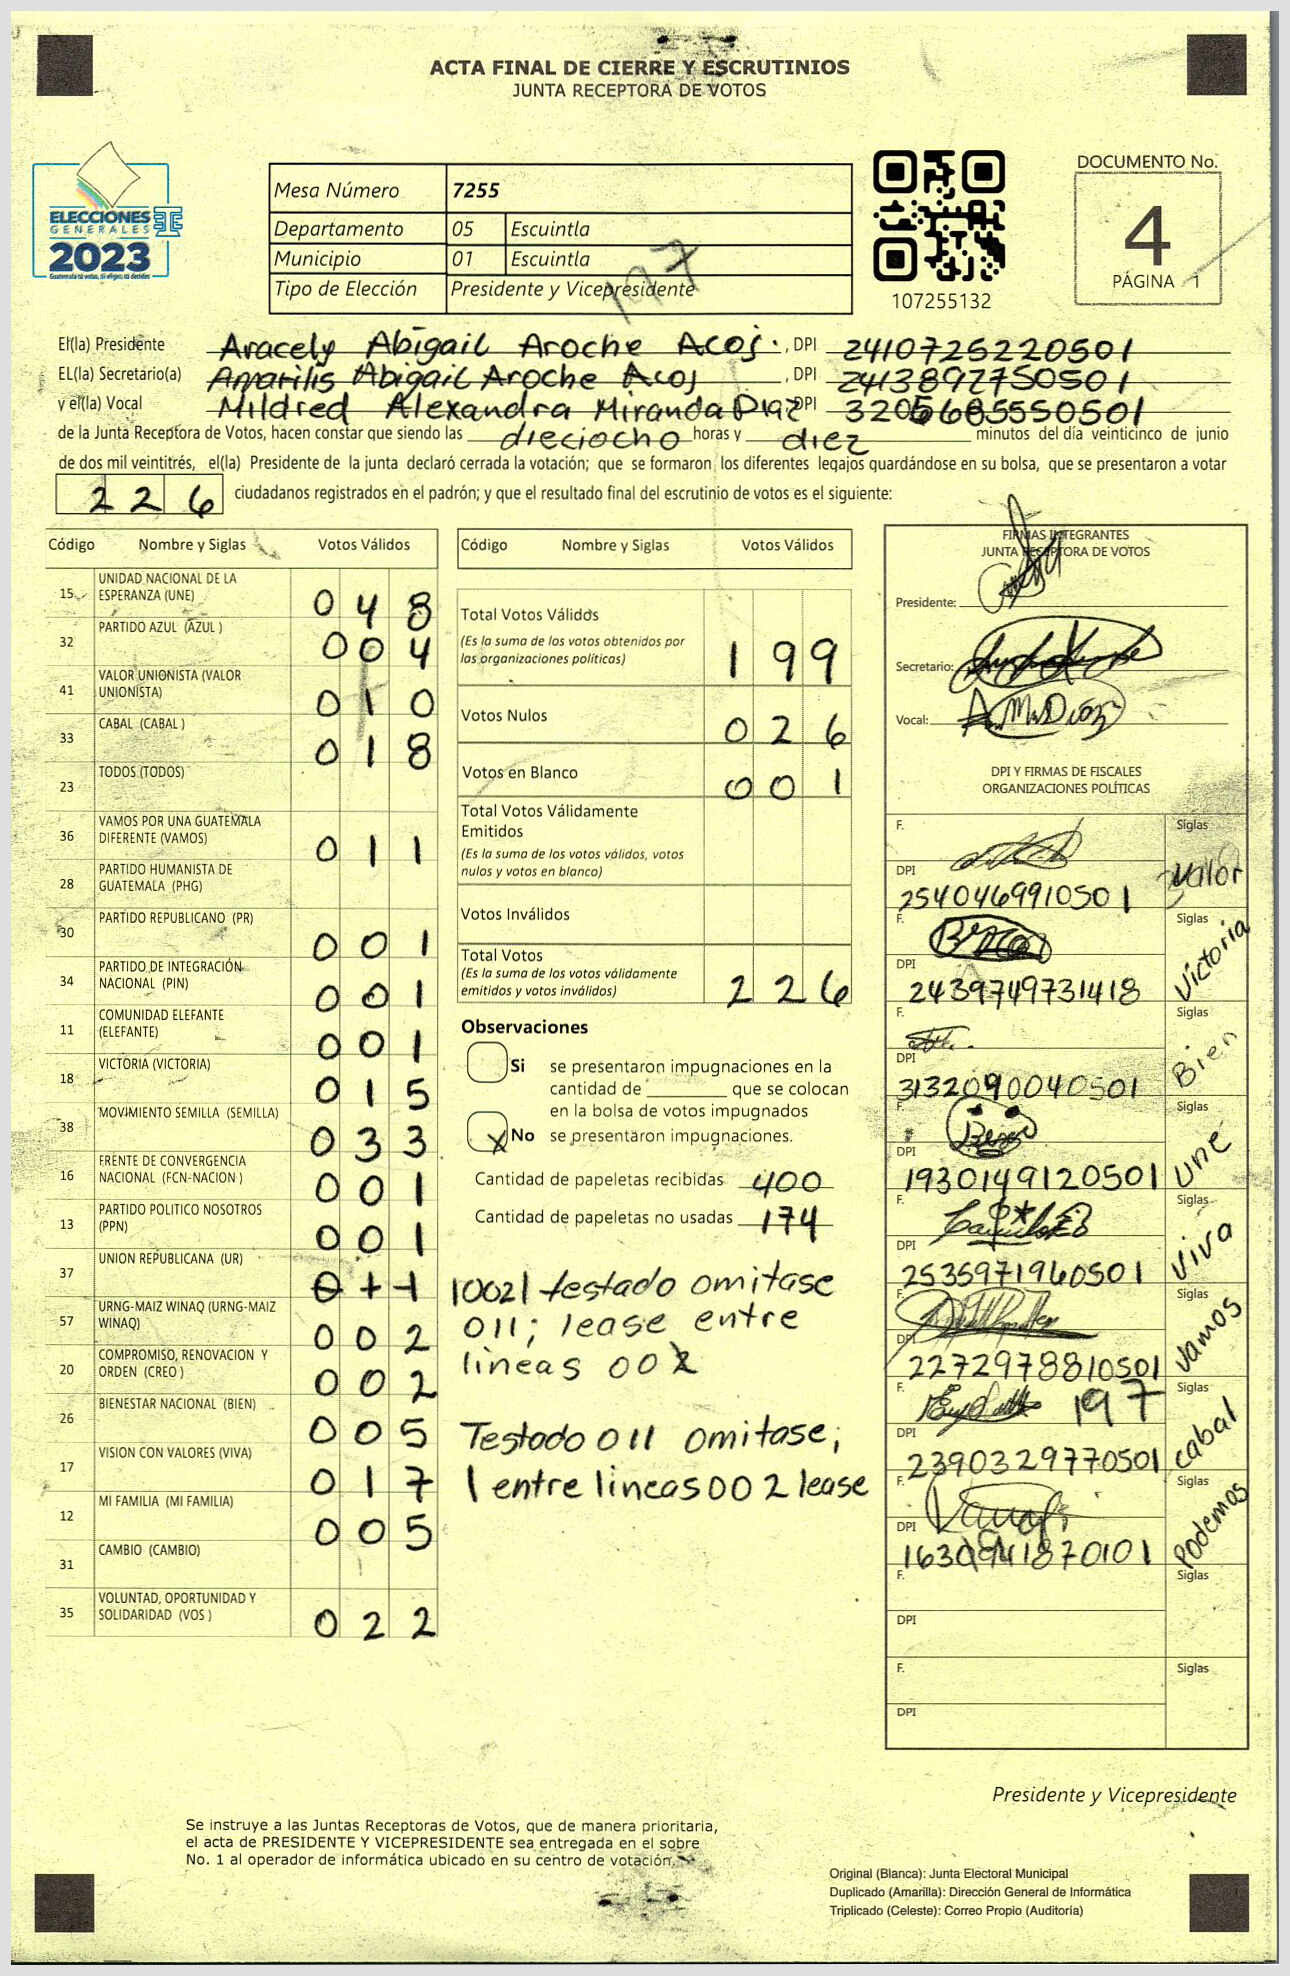 ACTA FINAL DE CIERRE Y ESCRUTINIOS
JUNTA RECEPTORA DE VOTOS
ELECCIONES
GENERALES
2023
Mesa Número 7255
Departamento 05 Escuintla
Municipio 01 Escuintla
Tipo de Elección Presidente y Vicepresidente
197
107255132
DOCUMENTO No.
4
PÁGINA 1
El(la) Presidente Aracely Abigail Aroche Acoj. , DPI 2410725220501
EL(la) Secretario(a) Amarilis Abigail Aroche Acoj , DPI 2413892750501
y el(la) Vocal Mildred Alexandra Miranda Diaz DPI 3205685550501
de la Junta Receptora de Votos, hacen constar que siendo las dieciocho horas y diez minutos del día veinticinco de junio
de dos mil veintitrés, el(la) Presidente de la junta declaró cerrada la votación; que se formaron los diferentes legajos guardándose en su bolsa, que se presentaron a votar
226 ciudadanos registrados en el padrón; y que el resultado final del escrutinio de votos es el siguiente:
Código Nombre y Siglas Votos Válidos
15 UNIDAD NACIONAL DE LA ESPERANZA (UNE) 048
32 PARTIDO AZUL (AZUL ) 004
41 VALOR UNIONISTA (VALOR UNIONISTA) 010
33 CABAL (CABAL ) 018
23 TODOS (TODOS)
36 VAMOS POR UNA GUATEMALA DIFERENTE (VAMOS) 011
28 PARTIDO HUMANISTA DE GUATEMALA (PHG)
30 PARTIDO REPUBLICANO (PR) 001
34 PARTIDO DE INTEGRACIÓN NACIONAL (PIN) 001
11 COMUNIDAD ELEFANTE (ELEFANTE) 001
18 VICTORIA (VICTORIA) 015
38 MOVIMIENTO SEMILLA (SEMILLA) 033
16 FRENTE DE CONVERGENCIA NACIONAL (FCN-NACION ) 001
13 PARTIDO POLITICO NOSOTROS (PPN) 001
37 UNION REPUBLICANA (UR) 011
57 URNG-MAIZ WINAQ (URNG-MAIZ WINAQ) 002
20 COMPROMISO, RENOVACION Y ORDEN (CREO ) 002
26 BIENESTAR NACIONAL (BIEN) 005
17 VISION CON VALORES (VIVA) 017
12 MI FAMILIA (MI FAMILIA) 005
31 CAMBIO (CAMBIO)
35 VOLUNTAD, OPORTUNIDAD Y SOLIDARIDAD (VOS ) 022
Código Nombre y Siglas Votos Válidos
Total Votos Válidos 199
(Es la suma de los votos obtenidos por
las organizaciones políticas)
Votos Nulos 026
Votos en Blanco 001
Total Votos Válidamente
Emitidos
(Es la suma de los votos válidos, votos
nulos y votos en blanco)
Votos Inválidos
Total Votos 226
(Es la suma de los votos válidamente
emitidos y votos inválidos)
Observaciones
Si se presentaron impugnaciones en la
cantidad de ________ que se colocan
en la bolsa de votos impugnados
X No se presentaron impugnaciones.
Cantidad de papeletas recibidas 400
Cantidad de papeletas no usadas 174
10021 testado omitase
011; lease entre
lineas 002
Testado 011 omitase;
1 entre lineas 002 lease
FIRMAS INTEGRANTES
JUNTA RECEPTORA DE VOTOS
Presidente:
Secretario:
Vocal:
DPI Y FIRMAS DE FISCALES
ORGANIZACIONES POLÍTICAS
F. Siglas Valor
DPI 2540469910501
F. Siglas Victoria
DPI 2439749731418
F. Siglas Bien
DPI 3132090040501
F. Siglas une
DPI 1930149120501
F. Siglas Viva
DPI 2535971960501
F. Siglas Vamos
DPI 2272978810501
F. 197 Siglas cabal
DPI 2390329770501
F. Siglas Podemos
DPI 1630941870101
F. Siglas
DPI
F. Siglas
DPI
Presidente y Vicepresidente
Se instruye a las Juntas Receptoras de Votos, que de manera prioritaria,
el acta de PRESIDENTE Y VICEPRESIDENTE sea entregada en el sobre
No. 1 al operador de informática ubicado en su centro de votación.
Original (Blanca): Junta Electoral Municipal
Duplicado (Amarilla): Dirección General de Informática
Triplicado (Celeste): Correo Propio (Auditoría)